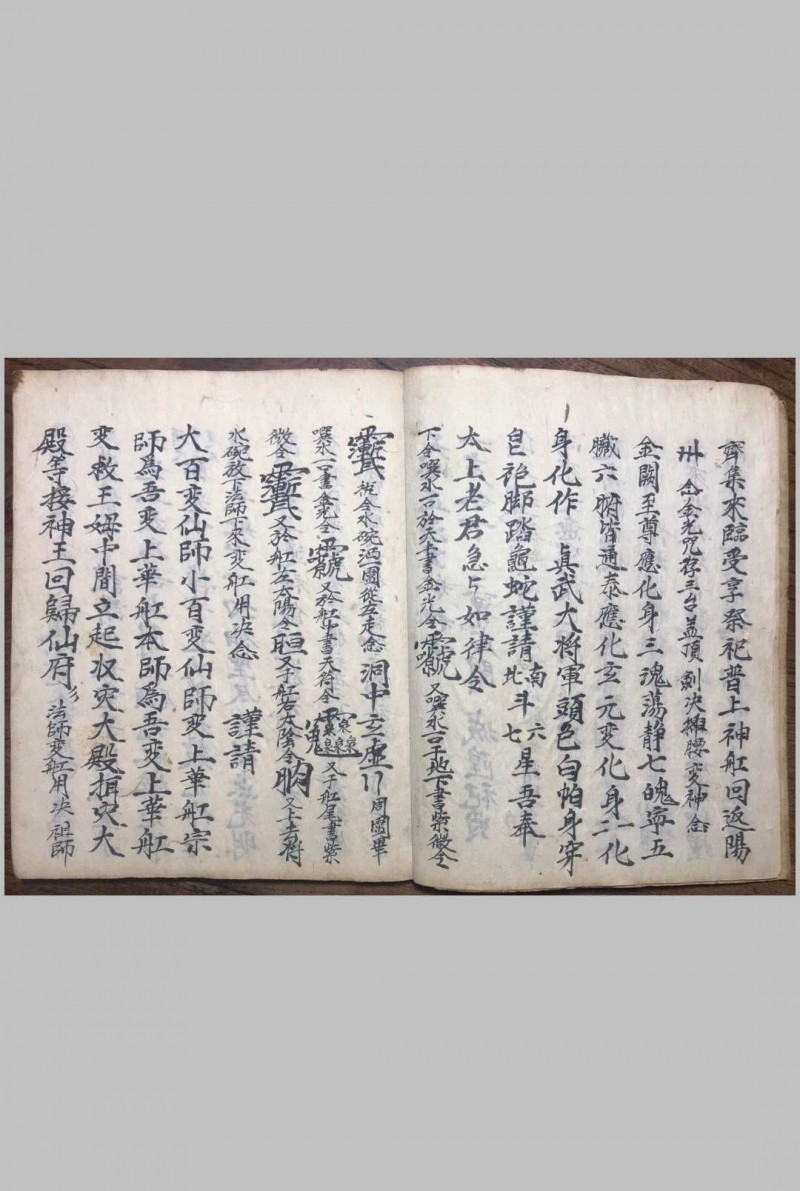 齊集來臨受享祭祀普上神舡回返陽
州 念金光咒存三台蓋頂 劍决揷腰变神念
金闕至尊應化身三魂蕩静七魄寧五
臟六腑皆通泰應化玄元变化身一化
身化作 真武大將軍頭色白帕身穿
皀袍脚踏龜蛇謹請南斗六星北斗七星吾奉
太上老君急々如律令
下令噀水一口於天上書金光令 又噀水一口于地下書紫微令
說令水碗洒圍從左走念 洞中玄虛 周圍畢
噀水一口書金光令 又於舡中書天符令 又于舡尾書紫
微令 又於舡左太陽令 又于舡右太陰令 又上
水碗放下法師下來变舡用决念 謹請
大百变仙師小百变仙師变上華舡宗
師為吾变上華舡本師為吾变上華舡
变救王姆中間立起収灾大殿揖灾大
殿等接神王回歸仙府 法師变舡用决祖師